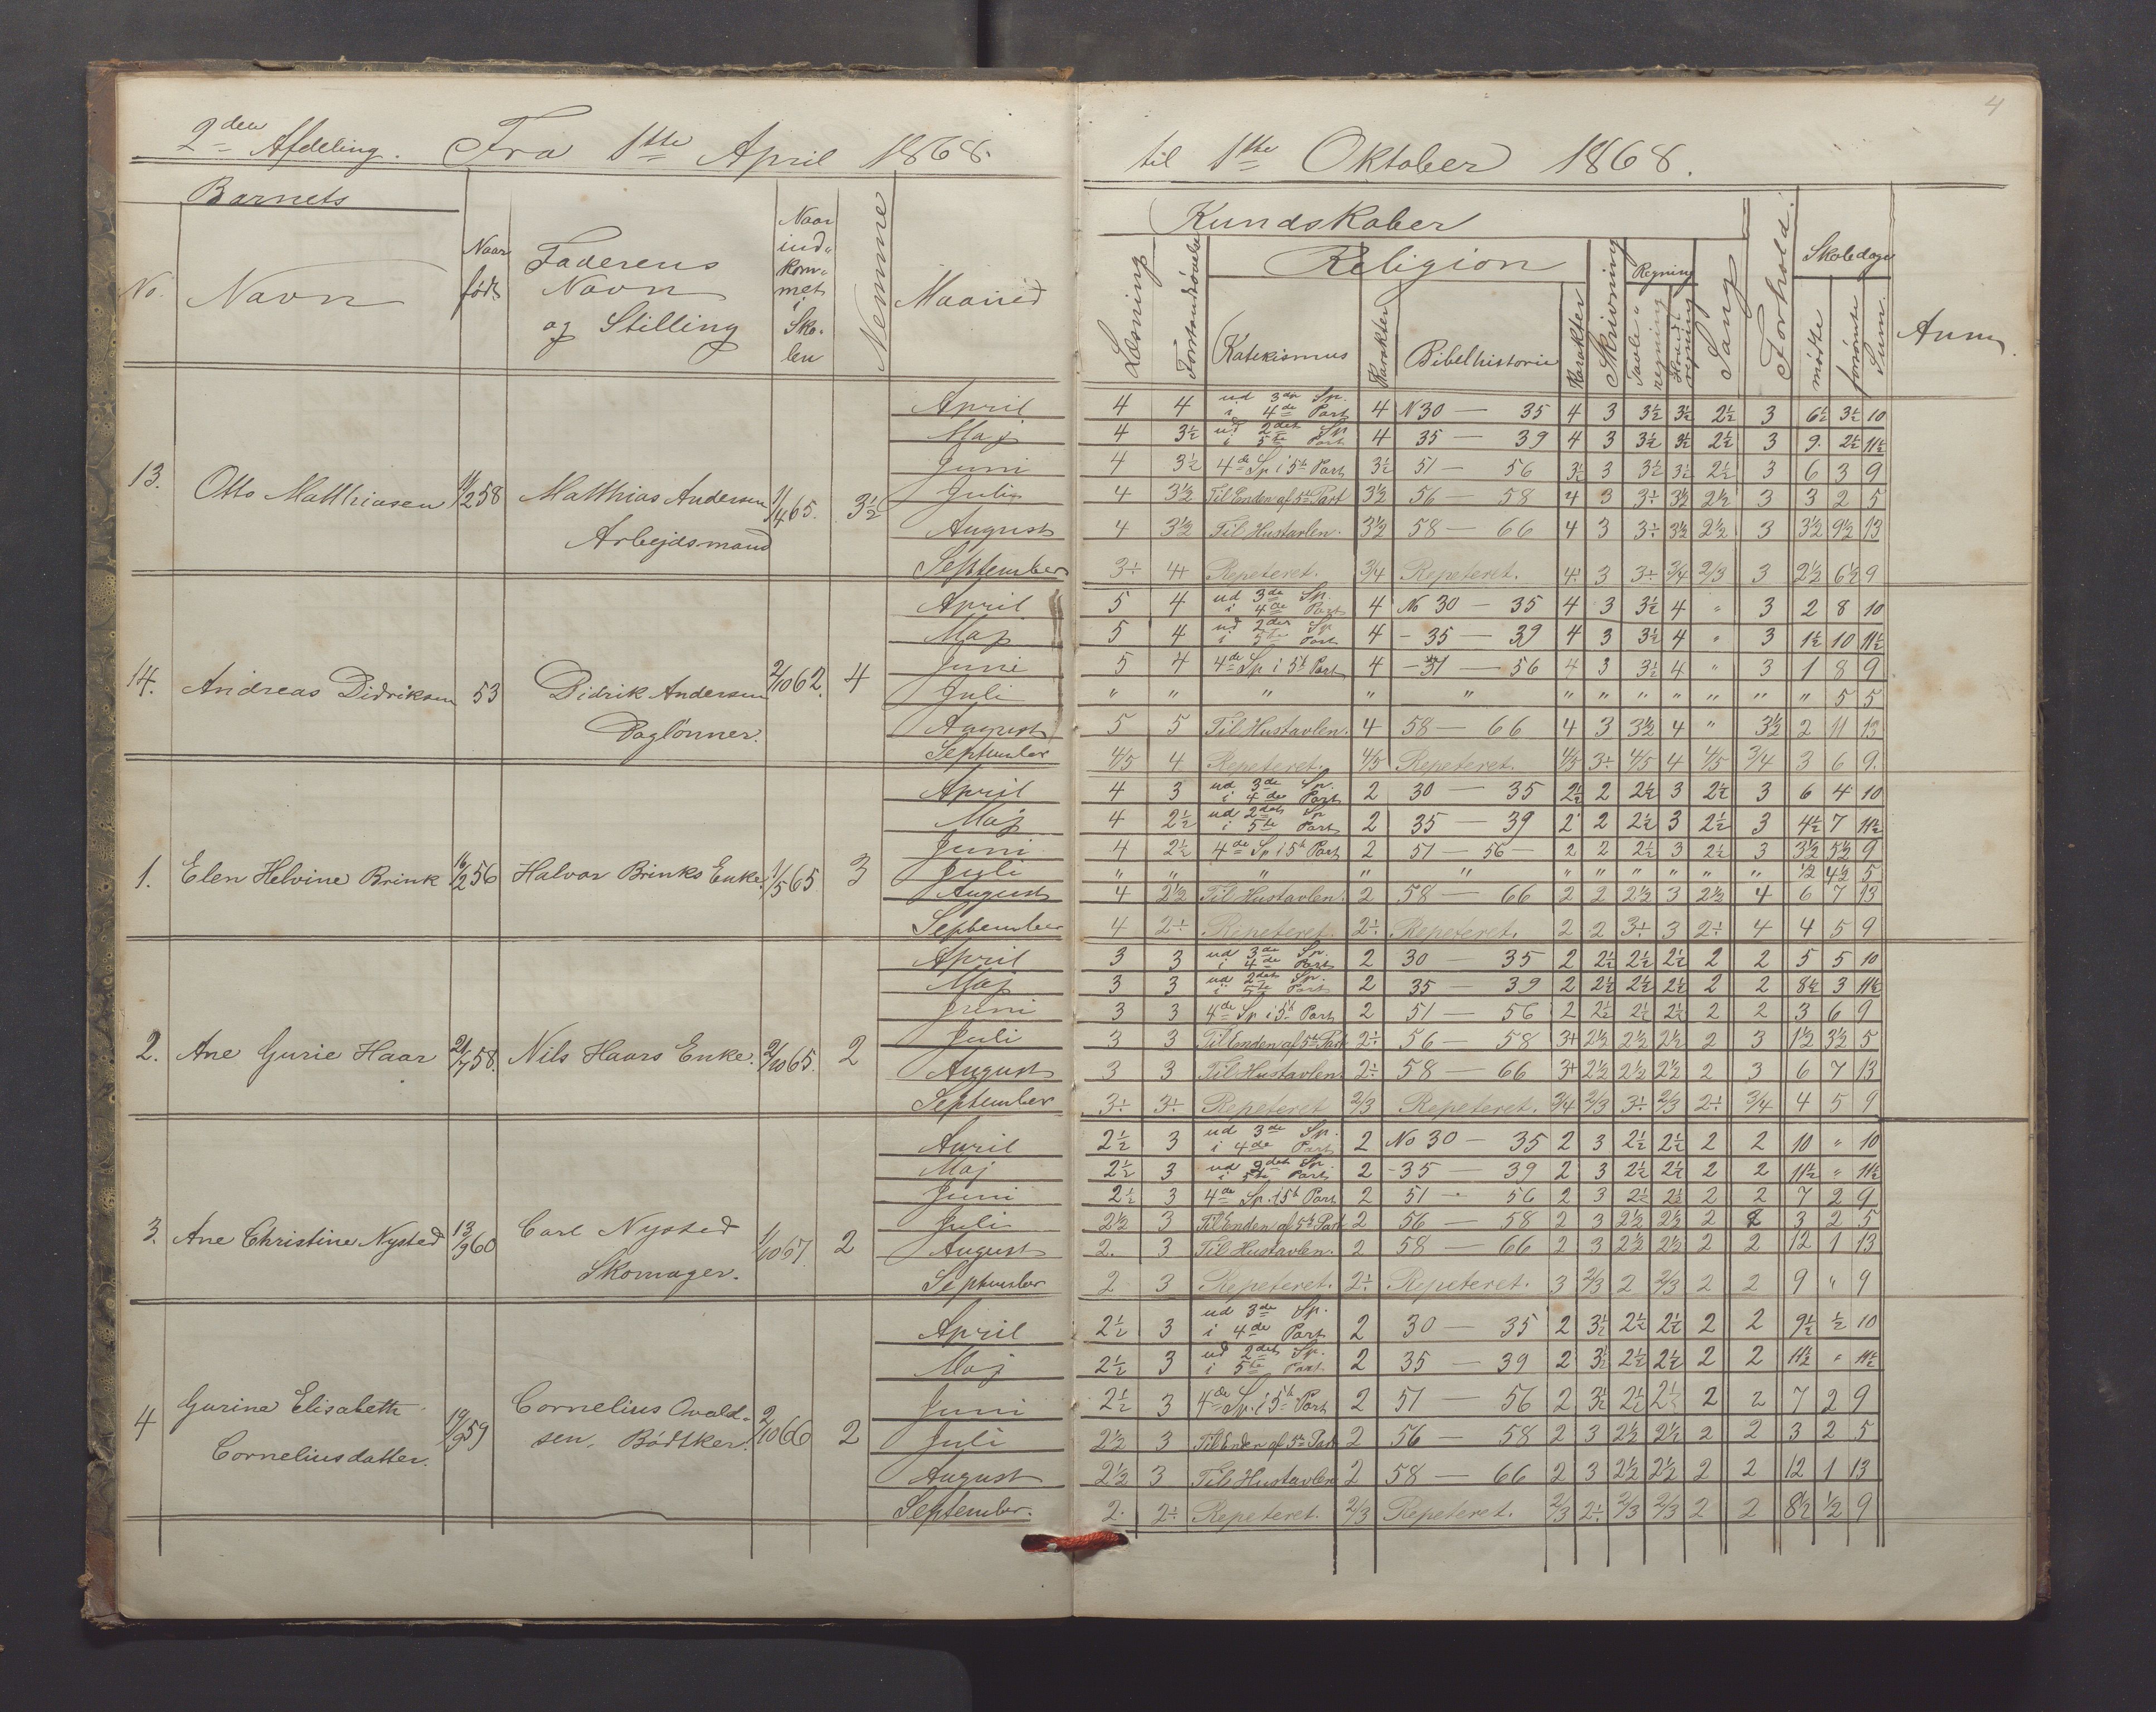 4
2den Afdeling. Fra 1ste April 1868.
til 1ste Oktober 1868.
Barnets
No.
Navn
Naar født
Faderens
Navn
og Stilling
Naar
ind-
kom-
met
i
Sko-
len
Nemme
Maaned
Kundskaber
Læsning
Forstandsøvelse
Religion
Katekismus
Karakter
Bibelhistorie
Karakter
Skrivning
Regning
Tavle-
regning
Hoved-
regning
Sang
Forhold.
Skoledage
mødte
forsømte
Sum.
Anm.
13. Otto Matthiasen 11/2 58 Matthias Andersen 1/4 65. 3½
Arbejdsmand
April 4 4 ud 3die Sp. i 4de Part 4 No 30 — 35 4 3 3½ 3½ 2½ 3 6½ 3½ 10
Maj 4 3½ ud 2det Sp i 5te Part 4 35 — 39 4 3 3½ 3½ 2½ 3 9. 2½ 11½
Juni 4 3½ 4de Sp i 5te Part 3½ 51 — 56 3½ 3 3½ 3½ 2½ 3 6 3 9
Juli 4 3½ Til Enden af 5te Part 3½ 56 — 58 4 3 3÷ 3½ 2½ 3 3 2 5
August 4 3½ Til Hustavlen. 3½ 58 — 66 4 3 3÷ 3½ 2½ 3 3½ 9½ 13
September 3÷ 4+ Repeteret. 3/4 Repeteret. 4! 3 3÷ 3/4 2/3 3 2½ 6½ 9
14. Andreas Didriksen 53 Didrik Andersen 2/10 62. 4
Daglønner.
April 5 4 ud 3de Sp. i 4de Part 4 No 30 — 35 4 3 3½ 4 " 3 2 8 10
Maj 5 4 ud 2det Sp i 5te Part 4 - 35 — 39 4 3 3½ 4 " 3 1½ 10 11½
Juni 5 4 4de Sp i 5te Part 4 - 51 — 56 4 3 3½ 4 " 3 1 8 9
Juli " " " " " " " " " " " " 5 5
August 5 5 Til Hustavlen. 4 58 — 66 4 3 3½ 4 " 3½ 2 11 13
September 4/5 4 Repeteret. 4/5 Repeteret. 4/5 3÷ 4/5 4 4/5 3/4 3 6 9.
1. Elen Helvine Brink 16/2 56 Halvor Brinks Enke. 1/5 65 3
April 4 3 ud 3de Sp. i 4de Part 2 30 — 35 2½ 2 2½ 3 2½ 3 6 4 10
Maj 4 2½ ud 2det Sp i 5te Part 2 35 — 39 2 2 2½ 3 2½ 3 4½ 7 11½
Juni 4 2½ 4de Sp i 5te Part 2 51 — 56 2 2 2½ 3 2½ 3 3½ 5½ 9
Juli " " " " " " " " " " " ½ 4½ 5
August 4 2½ Til Hustavlen. 2 58 — 66 2 2 2½ 3 2½ 4 6 7 13
September 4 2÷ Repeteret. 2÷ Repeteret. 2 2 3÷ 3 2÷ 4 4 5 9
2. Ane Gurie Haar 21/7 58. Nils Haars Enke. 2/10 65. 2
April 3 3 ud 3de Sp. i 4de Part 2 30 — 35 2 2½ 2½ 2½ 2 2 5 5 10
Maj 3 3 ud 2det Sp. i 5te Part 2 35 — 39 2 2½ 2½ 2½ 2 2 8½ 3 11½
Juni 3 3 4de Sp i 5te Part 2 51 — 56 2 2½ 2½ 2½ 2 2 3 6 9
Juli 3 3 Til Enden af 5te Part 2÷ 56 — 58 3+ 2½ 2½ 2½ 2 3 1½ 3½ 5
August 3 3 Til Hustavlen. 2÷ 58 — 66 3+ 2½ 2½ 2½ 2 3 6 7 13
September 3÷ 3÷ Repeteret 2/3 Repeteret. 3/4 2/3 3÷ 2/3 2÷ 3/4 4 5 9
3. Ane Christine Nysted 13/9 60 Carl Nysted 1/10 67. 2
Skomager.
April 2½ 3 ud 3de Sp. i 4de Part 2 No 30 — 35 2 3 2½ 2½ 2 2 10 " 10
Maj 2½ 3 ud 2det Sp. i 5te Part 2 - 35 — 39 2 3 2½ 2½ 2 2 11½ " 11½
Juni 2½ 3 4de Sp. i 5te Part 2 51 - 56 2 3 2½ 2½ 2 2 7 2 9
Juli 2½ 3 Til Enden af 5te Part 2 56 — 58 2 3 2½ 2½ 2 2 3 2 5
August 2. 3 Til Hustavlen. 2 58 — 66 2 3 2½ 2½ 2 2 12 1 13
September 2 3 Repeteret. 2÷ Repeteret. 3 2/3 2 2/3 2 2 9 " 9
4 Gurine Elisabeth 19/9 59 Cornelius Osvald- 2/10 66 2
Corneliusdatter. sen. Bødtker.
April 2½ 3 ud 3de Sp. i 4de Part 2 30 — 35 2 3½ 2½ 2½ 2 2 9½ ½ 10
Maj 2½ 3 ud 2det Sp. i 5te Part 2 35 — 39 2 3½ 2½ 2½ 2 2 11½ " 11½
Juni 2½ 3 4de Sp. i 5te Part 2 51 — 56 2 3½ 2½ 2½ 2 2 7 2 9
Juli 2½ 3 Til Enden af 5te Part 2 56 — 58 2 3 2½ 2½ 2 2 3 2 5
August 2½ 3 Til Hustavlen 2 58 — 66 2 3 2½ 2½ 2 2 12 1 13
September. 2. 2÷ Repeteret. 2/3 Repeteret. 2/3 2÷ 2/3 2/3 2 2 8½ ½ 9